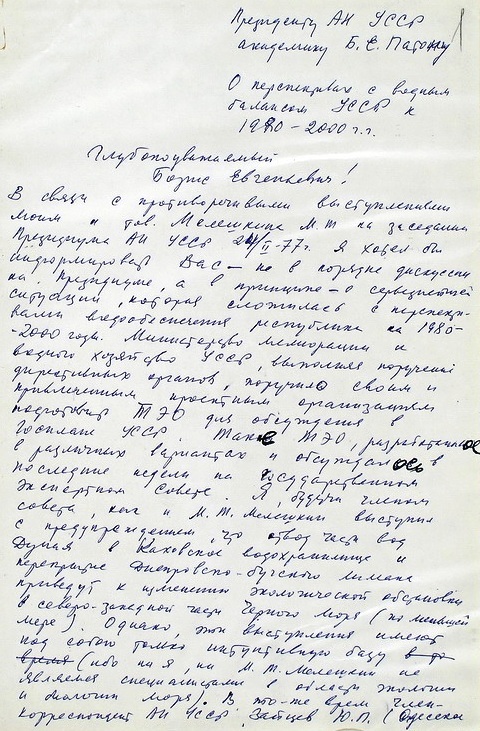 Президенту АН УССР
академику Б. Е. Патону
О перспективах с водным
балансом УССР к
1980-2000 г.г.
Глубокоуважаемый
Борис Евгеньевич!
В связи с противоречивыми выступлениями
моим и тов. Мелешкина М.Т. на заседании
Президиума АН УССР II-77г. я хотел бы
информировать Вас — не в порядке дискуссии
на Президиуме, а в принципе — о серьезнейшей
ситуации, которая сложилась с перспекти-
вами водообеспечения республики на 1980-
-2000 годы. Министерство мелиорации и
водного хозяйства УССР, выполняя поручения
директивных органов, поручило своим и
привлеченным проектным организациям
подготовить ТЭО для обсуждения в
Госплане УССР. Такое ТЭО, разработанное
в различных вариантах и обсуждалось в
последние недели на Государственном
экспертном совете. Я, будучи членом
совета, как и М.Т. Мелешкин выступил
с предупреждением, что отвод части вод
Дуная в Каховское водохранилище и
перекрытие Днепровско-бугского лимана
приведут к изменению экологической обстановки
в северо-западной части Черного моря (по меньшей
мере). Однако, эти выступления имеют
под собою только интуитивную базу в то
время (ибо ни я, ни М.Т. Мелешкин не
являемся специалистами в области экологии
и биологии моря). В то-же время член-
корреспондент АН УССР Зайцев Ю.П. (Одесское